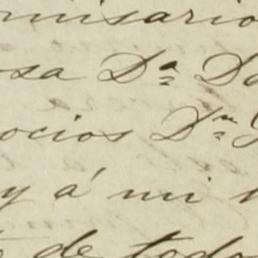 misario
osa Dª
ocios Dn
y á mi
de todos